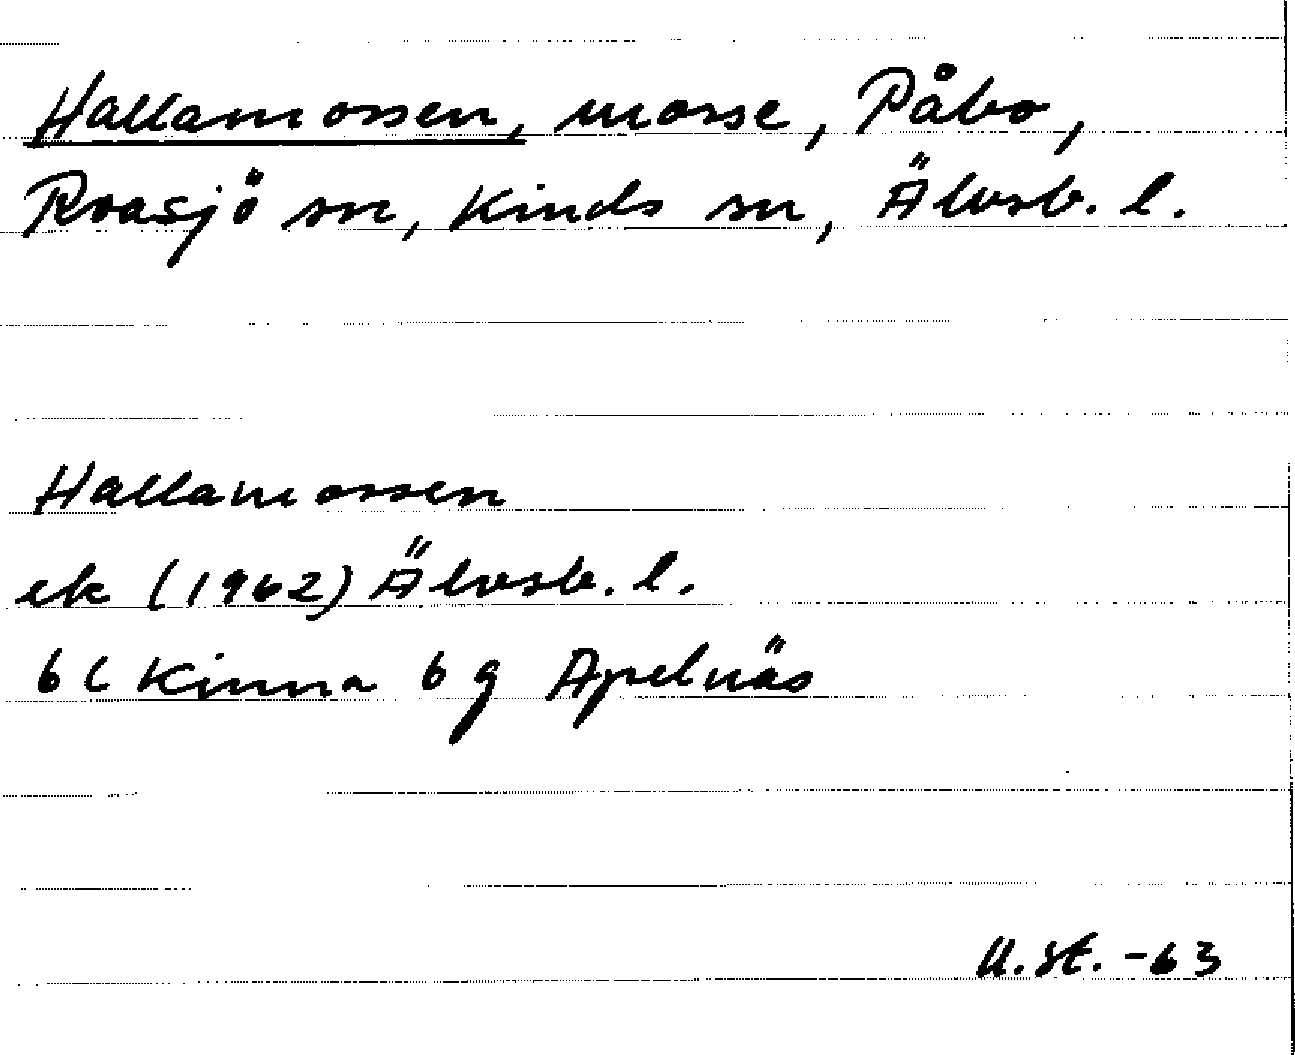 Hallamossen, mosse, Påbo,
Roasjö sn, Kinds sn, Älvsb. l.
Hallamossen
ek (1962) Älvsb. l.
6C Kinna 6 g Apelnäs
U. St. -63